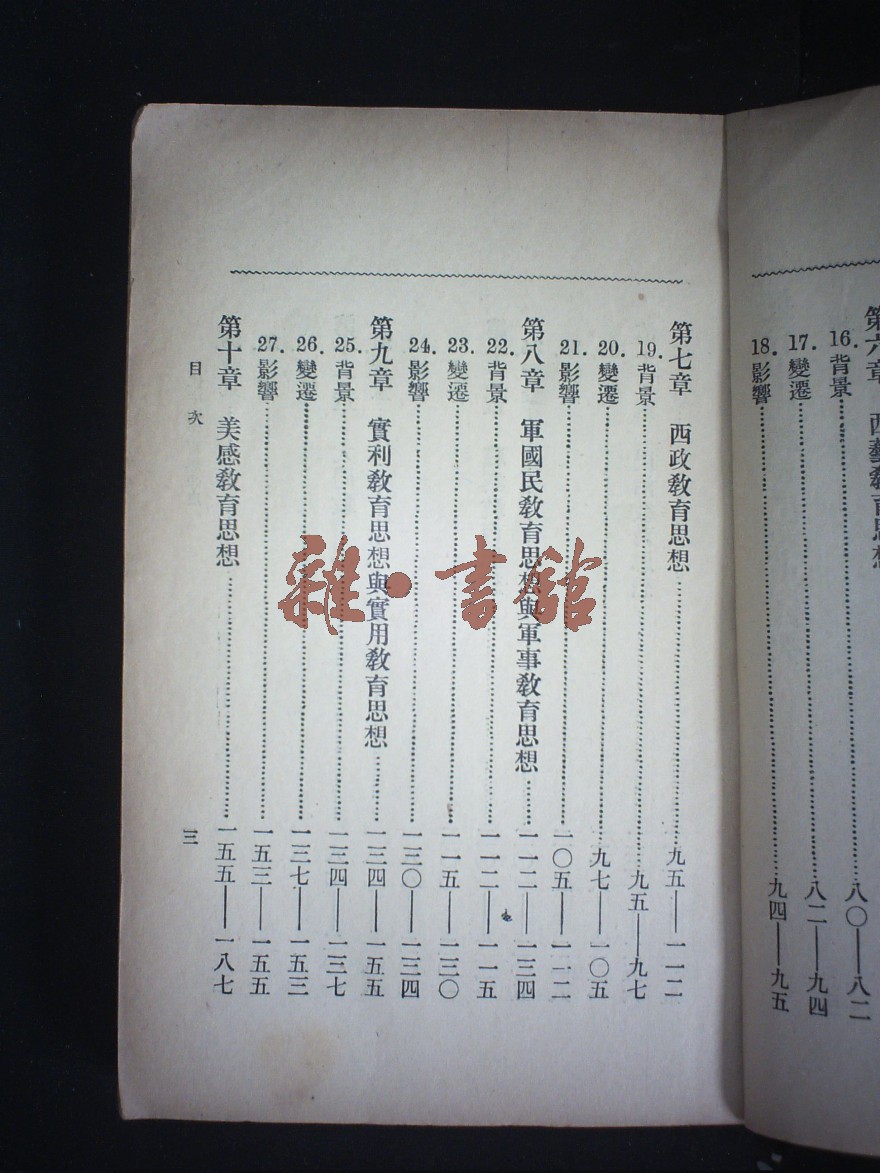 第六章　西藝教育思想
16. 背景………八〇——八二
17. 變遷………八二——九四
18. 影響………九四——九五
第七章　西政教育思想………九五——一一二
19. 背景………九五——九七
20. 變遷………九七——一〇五
21. 影響………一〇五——一一二
第八章　軍國民教育思想與軍事教育思想………一一二——一三四
22. 背景………一一二——一一五
23. 變遷………一一五——一三〇
24. 影響………一三〇——一三四
第九章　實利教育思想與實用教育思想………一三四——一五五
25. 背景………一三四——一三七
26. 變遷………一三七——一五三
27. 影響………一五三——一五五
第十章　美感教育思想………一五五——一八七
目次
三
雜·書館